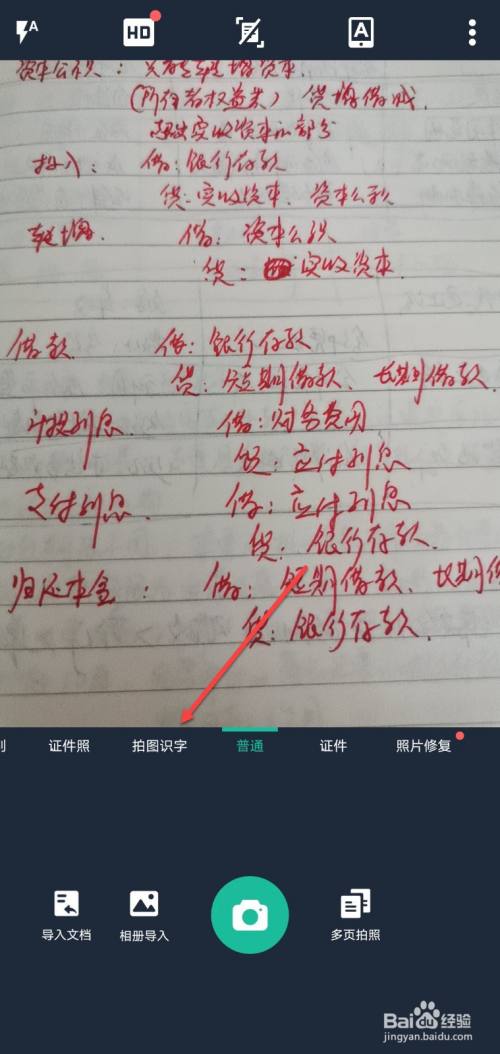 A
HD
A
资本公积：
(所有者权益类) 贷增借减.
超出实收资本的部分
投入： 借：银行存款
贷：实收资本、资本公积
转增. 借：资本公积
贷：实收资本.
借款 借：银行存款
贷：短期借款、长期借款
计提利息. 借：财务费用
贷：应付利息
支付利息. 借：应付利息
贷：银行存款.
归还本金： 借：短期借款、长期借
贷：银行存款.
证件照 拍图识字 普通 证件 照片修复
导入文档 相册导入 多页拍照
Baidu经验
jingyan.baidu.com